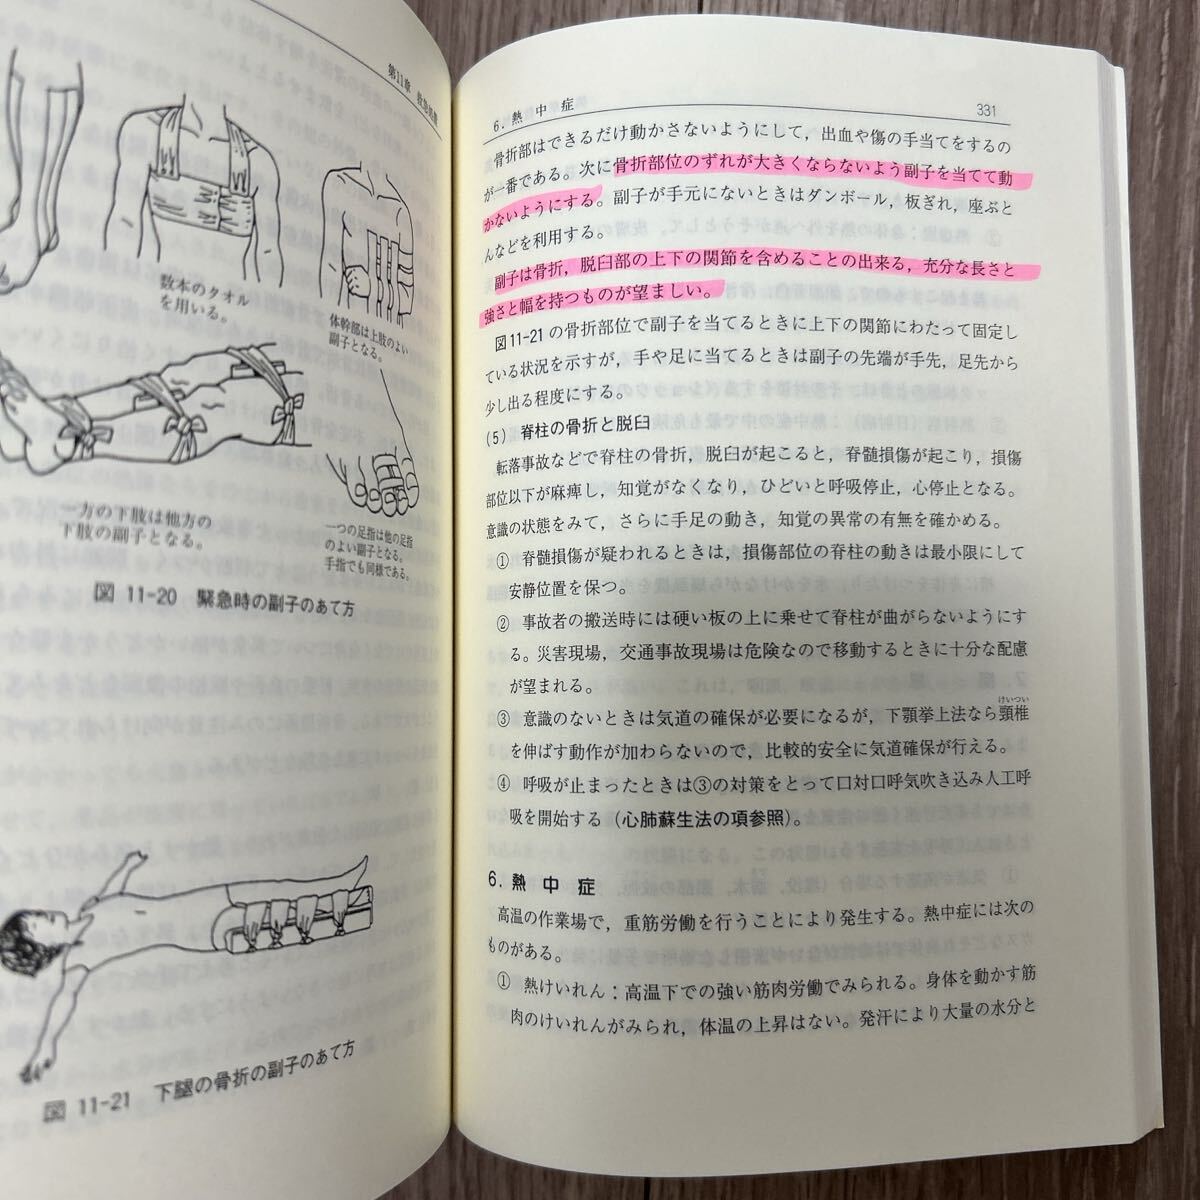 第11章 救急処置
数本のタオル
を用いる。
体幹部は上肢のよい
副子となる。
一方の下肢は他方の
下肢の副子となる。
一つの足指は他の足指
のよい副子となる。
手指でも同様である。
図 11-20 緊急時の副子のあて方
図 11-21 下腿の骨折の副子のあて方
6. 熱中症 331
骨折部はできるだけ動かさないようにして，出血や傷の手当てをするの
が一番である。次に骨折部位のずれが大きくならないよう副子を当てて動
かないようにする。副子が手元にないときはダンボール，板ぎれ，座ぶと
んなどを利用する。
副子は骨折，脱臼部の上下の関節を含めることの出来る，充分な長さと
強さと幅を持つものが望ましい。
図11-21の骨折部位で副子を当てるときに上下の関節にわたって固定し
ている状況を示すが，手や足に当てるときは副子の先端が手先，足先から
少し出る程度にする。
(5) 脊柱の骨折と脱臼
転落事故などで脊柱の骨折，脱臼が起こると，脊髄損傷が起こり，損傷
部位以下が麻痺し，知覚がなくなり，ひどいと呼吸停止，心停止となる。
意識の状態をみて，さらに手足の動き，知覚の異常の有無を確かめる。
① 脊髄損傷が疑われるときは，損傷部位の脊柱の動きは最小限にして
安静位置を保つ。
② 事故者の搬送時には硬い板の上に乗せて脊柱が曲がらないようにす
る。災害現場，交通事故現場は危険なので移動するときに十分な配慮
が望まれる。
けいつい
③ 意識のないときは気道の確保が必要になるが，下顎挙上法なら頸椎
を伸ばす動作が加わらないので，比較的安全に気道確保が行える。
④ 呼吸が止まったときは③の対策をとって口対口呼気吹き込み人工呼
吸を開始する（心肺蘇生法の項参照）。
6. 熱中症
高温の作業場で，重筋労働を行うことにより発生する。熱中症には次の
ものがある。
① 熱けいれん：高温下での強い筋肉労働でみられる。身体を動かす筋
肉のけいれんがみられ，体温の上昇はない。発汗により大量の水分と